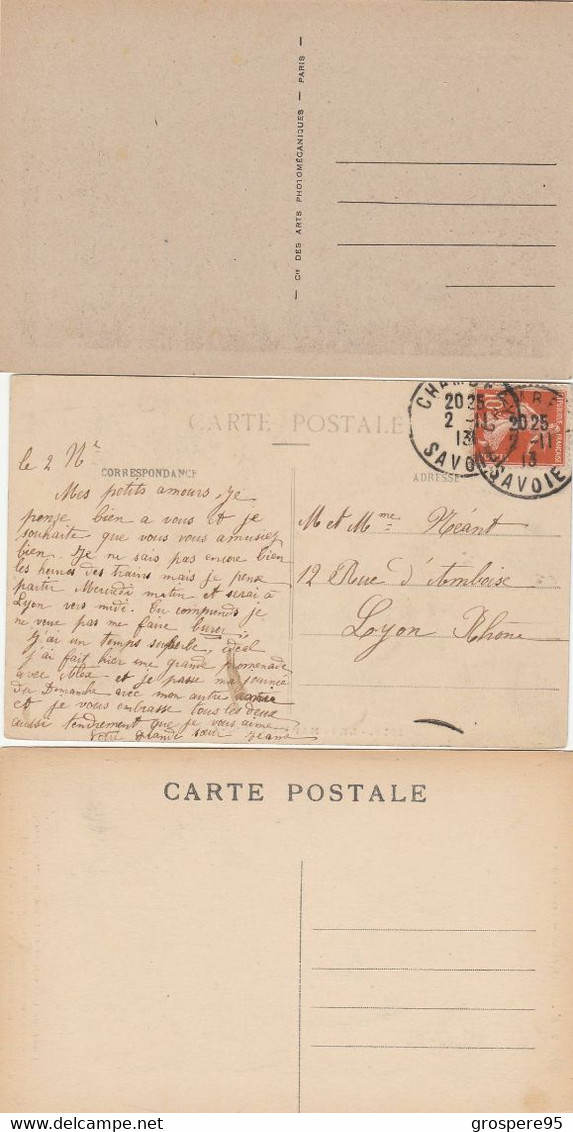 — Cie DES ARTS PHOTOMÉCANIQUES — PARIS —
CARTE POSTALE
CORRESPONDANCE
ADRESSE
20 25
2 -11
13
SAVOIE
20 25
2 -11
13
SAVOIE
le 2 Nre
Mes petits amours, Je
pense bien a vous et je
souhaite que vous vous amusiez
bien. Je ne sais pas encore bien
les heures des trains mais je pense
partir Mercredi matin et serai à
Lyon vers midi. Tu comprends je
ne veux pas me faire
J'ai un temps superbe, idéal
j'ai fait hier une grande promenade
avec et je passe ma journée
du Dimanche avec mon autre
et je vous embrasse tous les deux
aussi tendrement que je vous aime
Votre grande sœur Jeanne
M et Mme Néant
12 Rue d'Amboise
Lyon Rhône
CARTE POSTALE
grospere95